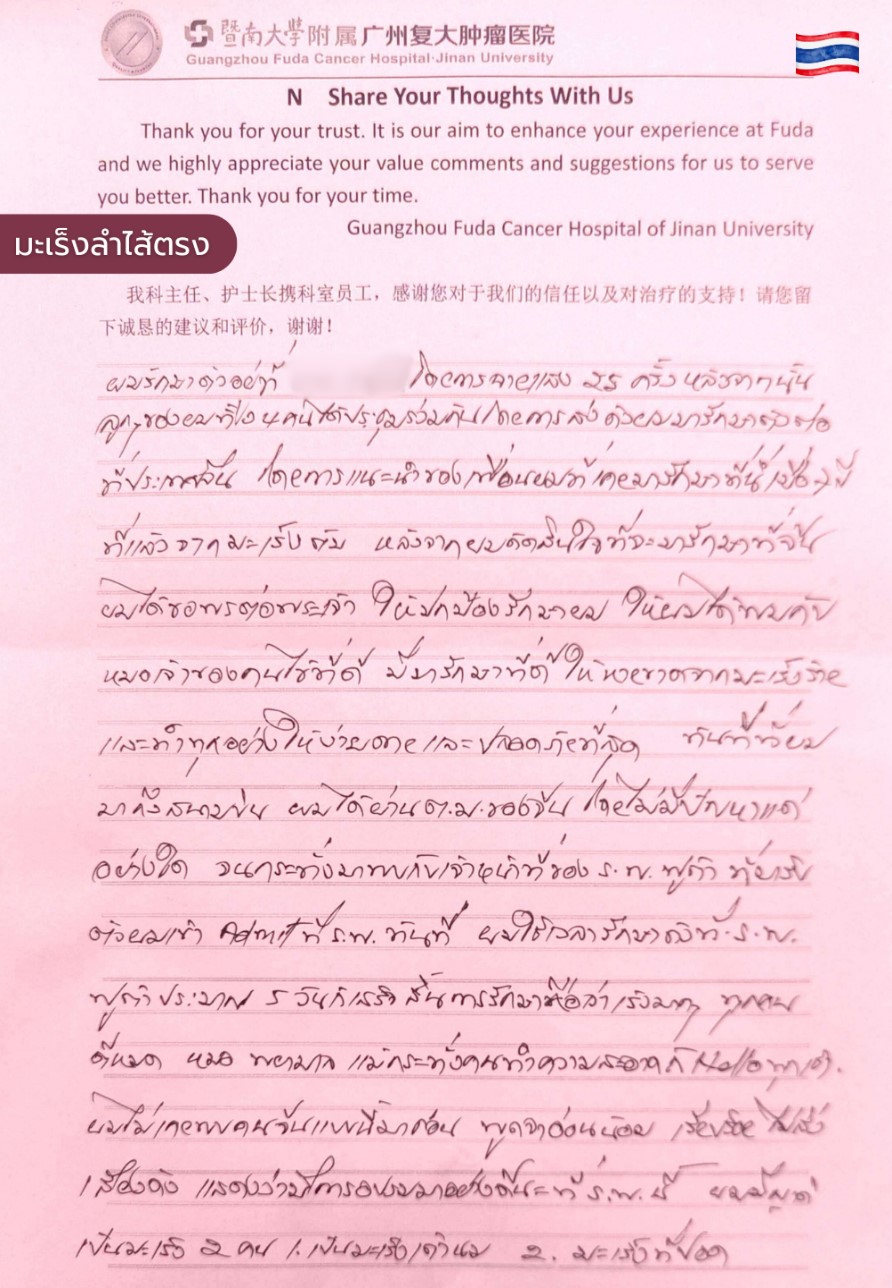 暨南大學附属广州复大肿瘤医院
Guangzhou Fuda Cancer Hospital·Jinan University
N Share Your Thoughts With Us
Thank you for your trust. It is our aim to enhance your experience at Fuda
and we highly appreciate your value comments and suggestions for us to serve
you better. Thank you for your time.
Guangzhou Fuda Cancer Hospital of Jinan University
มะเร็งลำไส้ตรง
我科主任、护士长携科室员工，感谢您对于我们的信任以及对治疗的支持！请您留
下诚恳的建议和评价，谢谢！
ผมรักษาตัวอยู่ที่ โดยการฉายแสง 25 ครั้ง หลังจากนั้น
ลูกๆของผมทั้ง 4 คนได้ประชุมร่วมกันโดยการส่งตัวผมมารักษาตัวต่อ
ที่ประเทศจีน โดยการแนะนำของเพื่อนผมที่เคยมารักษาที่นี่เมื่อ 7 ปี
ที่แล้วจากมะเร็งตับ หลังจากผมตัดสินใจที่จะมารักษาที่จีน
ผมได้ขอพรต่อพระเจ้า ให้ปกป้องรักษาผม ให้ผมได้พบกับ
หมอเจ้าของคนไข้ที่ดี มียารักษาที่ดี ให้หายขาดจากมะเร็งร้าย
และทำทุกอย่างให้ง่ายดายและปลอดภัยที่สุด ทันทีที่ผม
มาถึงสนามบิน ผมได้ผ่าน ต.ม.ของจีน โดยไม่มีปัญหาแต่
อย่างใด จนกระทั่งมาพบกับเจ้าหน้าที่ของ ร.พ. ฟูด้า ที่มารับ
ตัวผมเข้า Admit ที่ ร.พ. ทันที ผมใช้เวลารักษาตัวที่ ร.พ.
ฟูด้า ประมาณ 5 วันก็เสร็จสิ้นการรักษาถือว่าเร็วมากๆ ทุกคน
ดีหมด หมอ พยาบาล แม้กระทั่งคนทำความสะอาดก็ Hello ทุกเช้า.
ผมไม่เคยพบคนจีนแบบนี้มาก่อน พูดจาอ่อนน้อม เรียบร้อย ไม่ส่ง
เสียงดัง แสดงว่ามีการอบรมมาอย่างดีนะที่ ร.พ. นี้ ผมมีญาติ
เป็นมะเร็ง 2 คน 1. เป็นมะเร็งเต้านม 2. มะเร็งที่ปอด